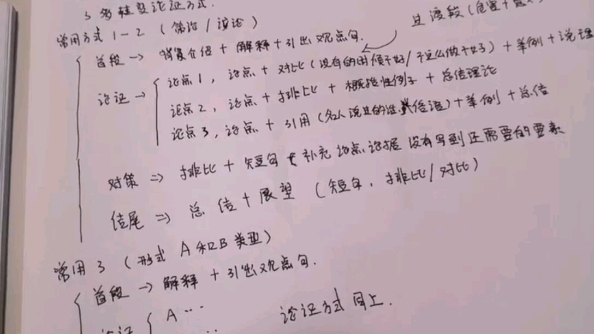 3 多种型论证方式.
常用方式 1-2 (常论 / 议论)
过渡段 (危害+
首段 → 背景介绍 + 解释 + 引出观点句.
论证 → 论点1, 论点 + 对比 (没有的时候不好 / 不这么做不好) + 举例 + 说理
论点2, 论点 + 排比 + 概括性例子 + 总结理论
论点3, 论点 + 引用 (名人说过的话, ) + 举例 + 总结
对策 ⇒ 排比 + 短句 补充 论点, 论据 没有写到还需要的要素
结尾 ⇒ 总结 + 展望 (短句, 排比/对比)
常用3 (形式 A和B类型)
首段 → 解释 + 引出观点句.
论证 A ··· 论证方式 同上.